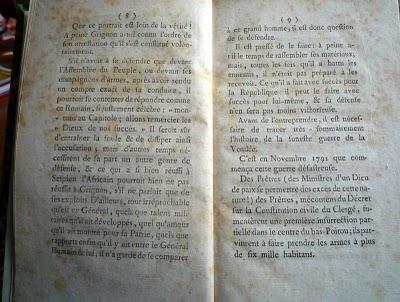 ( 8 )
Que ce portrait est loin de la vérité !
A peine Grignon a-t-il connu l'ordre de
son arrestation qu'il s'est constitué volon-
tairement.
S'il n'avoit à se défendre que devant
l'Assemblée du Peuple, ou devant ses
compagnons d'armes, après avoir rendu
un compte exact de sa conduite, il
pourroit se contenter de répondre comme
ce Romain, si justement célèbre : « mon-
» tons au Capitole ; allons remercier les
» Dieux de nos succès. » Il seroit sûr
d'entraîner la foule & de dissiper ainsi
l'accusation ; mais d'autres temps né-
cessitent de sa part un autre genre de
défense, & ce qui a si bien réussi à
Scipion l'Africain pourroit bien ne pas
réussir à Grignon, s'il ne parloit que de
ses exploits. D'ailleurs, tout irréprochable
qu'est ce Général, quels que talens mili-
taires qu'il ait développés, quel qu'amour
qu'il ait montré pour sa Patrie, quels que
rapports enfin qu'il y ait entre le Général
Romain & lui, il n'a garde de se comparer
( 9 )
à ce grand homme, il est donc question
de se défendre.
Il est pressé de le faire : à peine a-
t-il le temps de rassembler ses matériaux,
mais, toutes les fois qu'il a battu les
ennemis, il n'étoit pas préparé à les
recevoir. Ce qu'il a fait avec succès pour
la République il peut le faire avec
succès pour lui-même, & sa défense
n'en sera pas moins victorieuse.
Avant de l'entreprendre, il est néces-
saire de tracer très - sommairement
l'histoire de la funeste guerre de la
Vendée.
C'est en Novembre 1791 que com-
mença cette guerre désastreuse.
Des Prêtres (des Ministres d'un Dieu
de paix se permettre des excès de cette na-
ture ! ) des Prêtres, mécontens du Décret
sur la Constitution civile du Clergé, fo-
mentèrent une première insurrection par-
tielle dans le centre du bas-Poitou ; ils par-
vinrent à faire prendre les armes à plus
de six mille habitans.